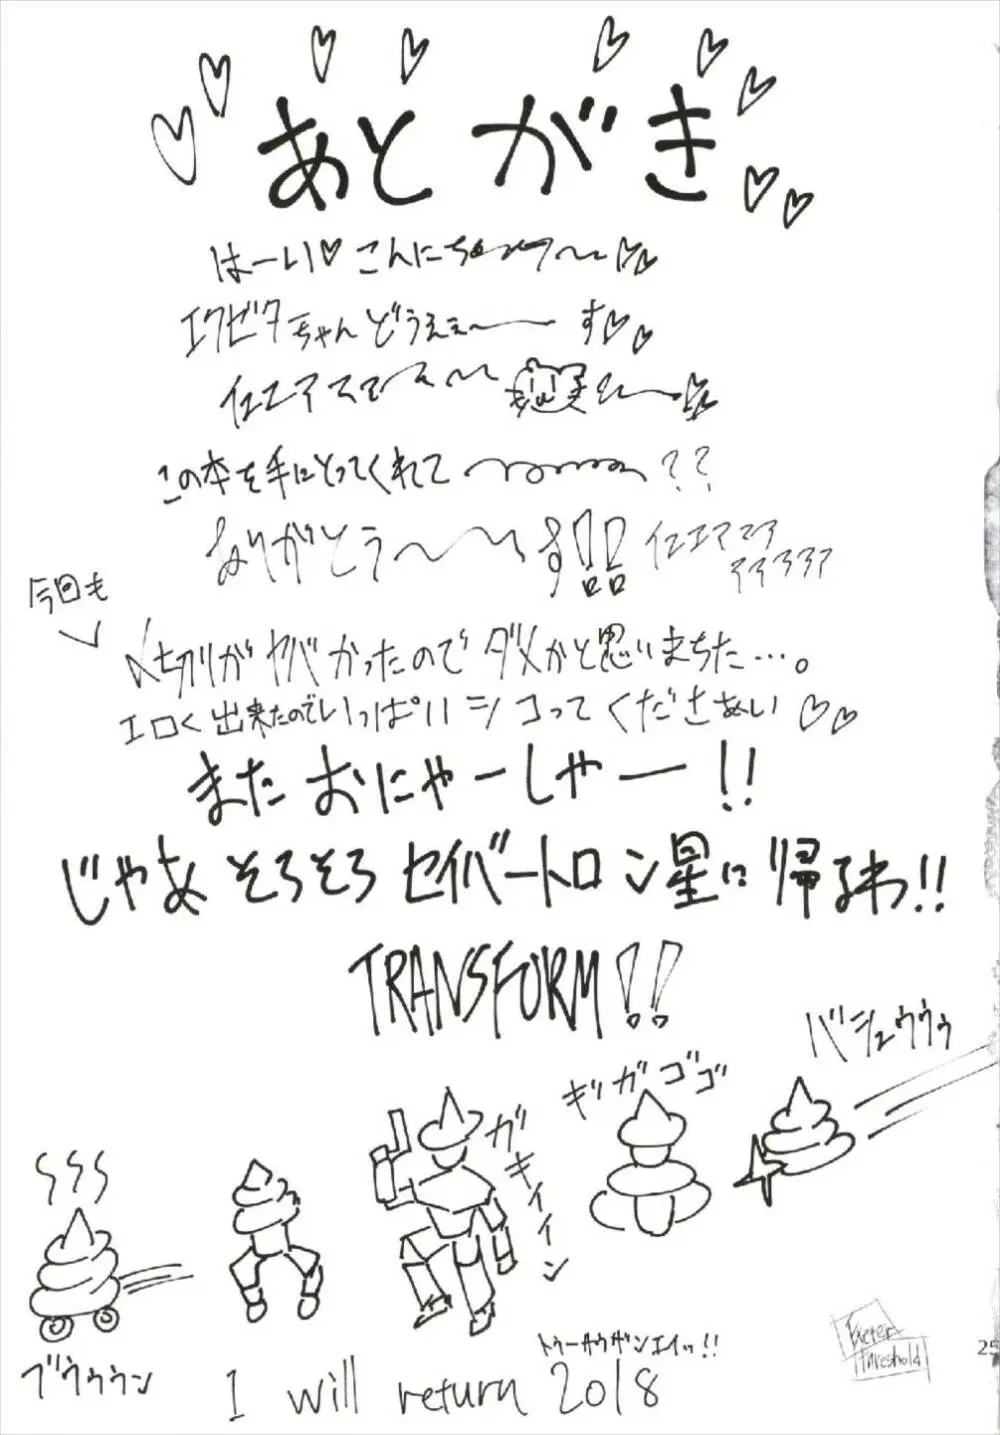 あとがき
はーい♡こんにちゎ〜〜♡♡
エクゼタちゃんどうぇぇ〜〜す♡♡
イエエア
この本を手にとってくれて〜〜??
ありがとう〜〜す!!
イエエアアア
アアアアアア
今回も
〆切りがヤバかったのでダメかと思いまちた…。
エロく出来たのでいっぱいシコってくださぁい♡♡
またおにゃーしゃー!!
じゃあそろそろセイバートロン星に帰るわ!!
TRANSFORM!!
バシュゥゥゥ
ギガゴゴ
ガキイイイン
ブゥゥゥン
トゥーサウザンエイッ!!
I will return 2018
Exeter
Threshold
25